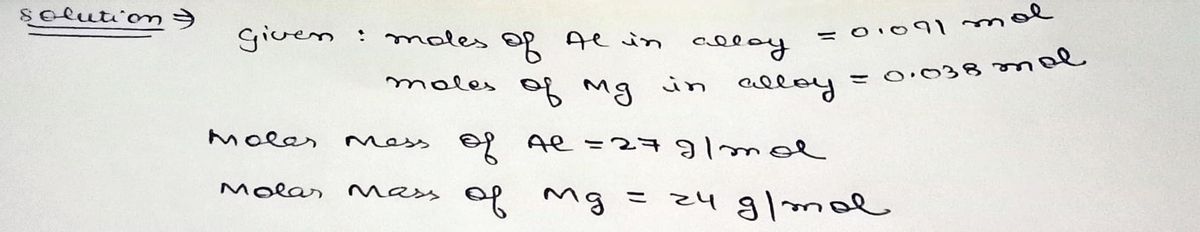 solution ⇒
given : moles of Al in alloy = 0.091 mol
moles of Mg in alloy = 0.038 mol
Molar Mass of Al = 27 g/mol
Molar Mass of Mg = 24 g/mol